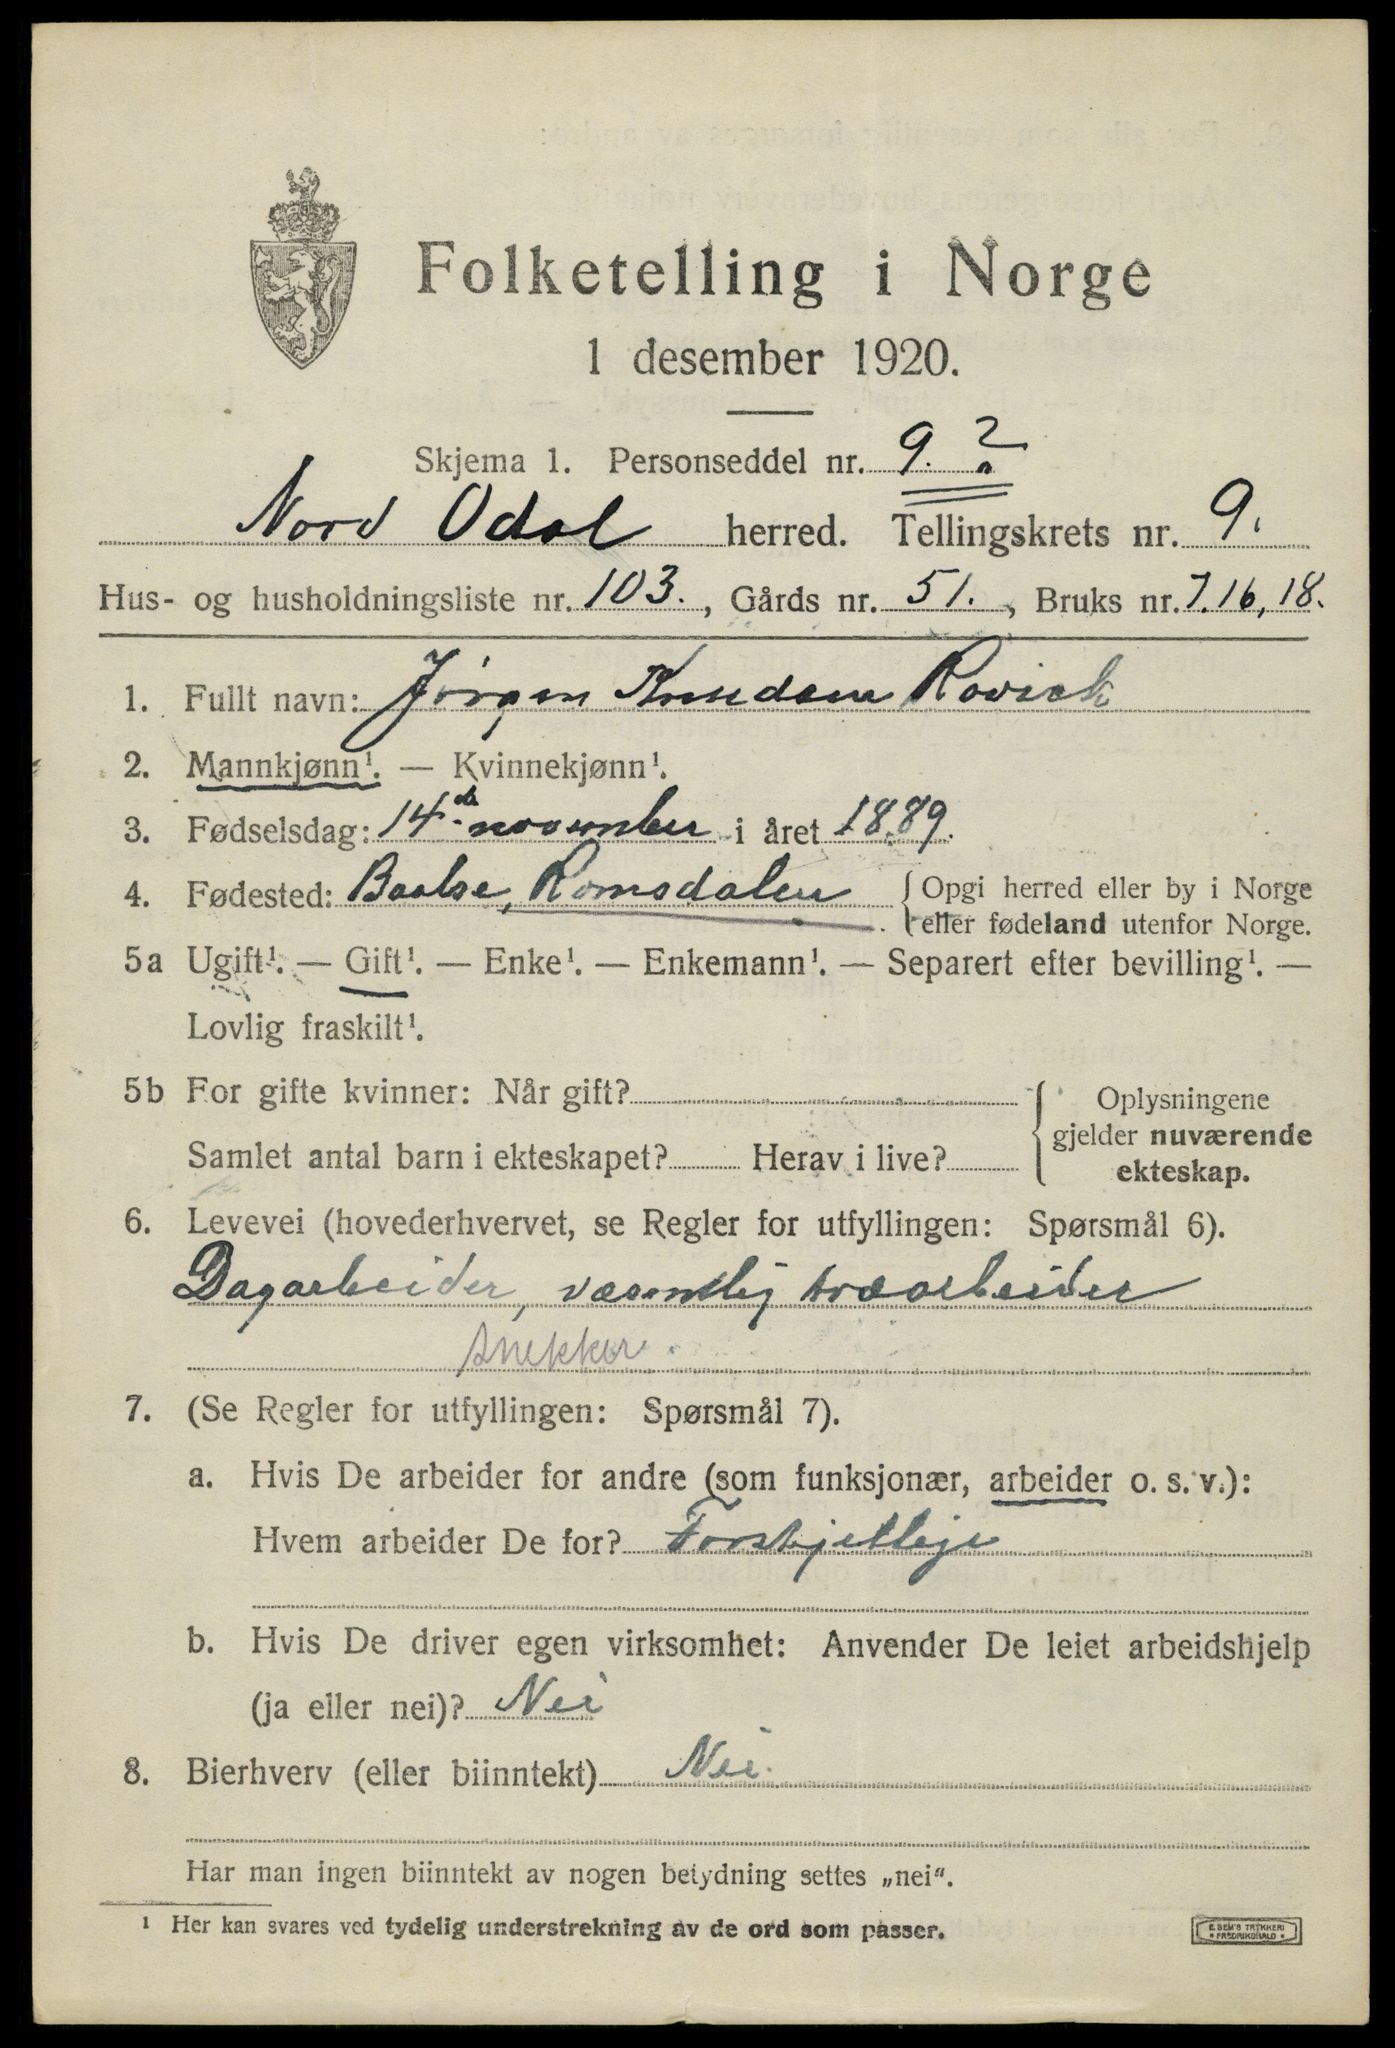 Folketelling i Norge
1 desember 1920.
Skjema 1. Personseddel nr. 9. ?
Nord Odal herred. Tellingskrets nr. 9.
Hus- og husholdningsliste nr. 103., Gårds nr. 51., Bruks nr. 7. 16, 18.
1. Fullt navn: Jørgen Knudsen Rovick
2. Mannkjønn¹. — Kvinnekjønn¹.
3. Fødselsdag: 14de november i året 1889.
4. Fødested: Baalsø, Romsdalen { Opgi herred eller by i Norge
eller fødeland utenfor Norge.
5a Ugift¹. — Gift¹. — Enke¹. — Enkemann¹. — Separert efter bevilling¹. —
Lovlig fraskilt¹.
5b For gifte kvinner: Når gift?
Samlet antal barn i ekteskapet? Herav i live?
Oplysningene
gjelder nuværende
ekteskap.
6. Levevei (hovederhvervet, se Regler for utfyllingen: Spørsmål 6).
Dagarbeider, væsentlig træarbeider
snekker.
7. (Se Regler for utfyllingen: Spørsmål 7).
a. Hvis De arbeider for andre (som funksjonær, arbeider o. s. v.):
Hvem arbeider De for? Forskjellige
b. Hvis De driver egen virksomhet: Anvender De leiet arbeidshjelp
(ja eller nei)? Nei
8. Bierhverv (eller biinntekt) Nei.
Har man ingen biinntekt av nogen betydning settes „nei“.
¹ Her kan svares ved tydelig understrekning av de ord som passer.
E. SEM'S TRYKKERI
* FREDRIKSHALD *